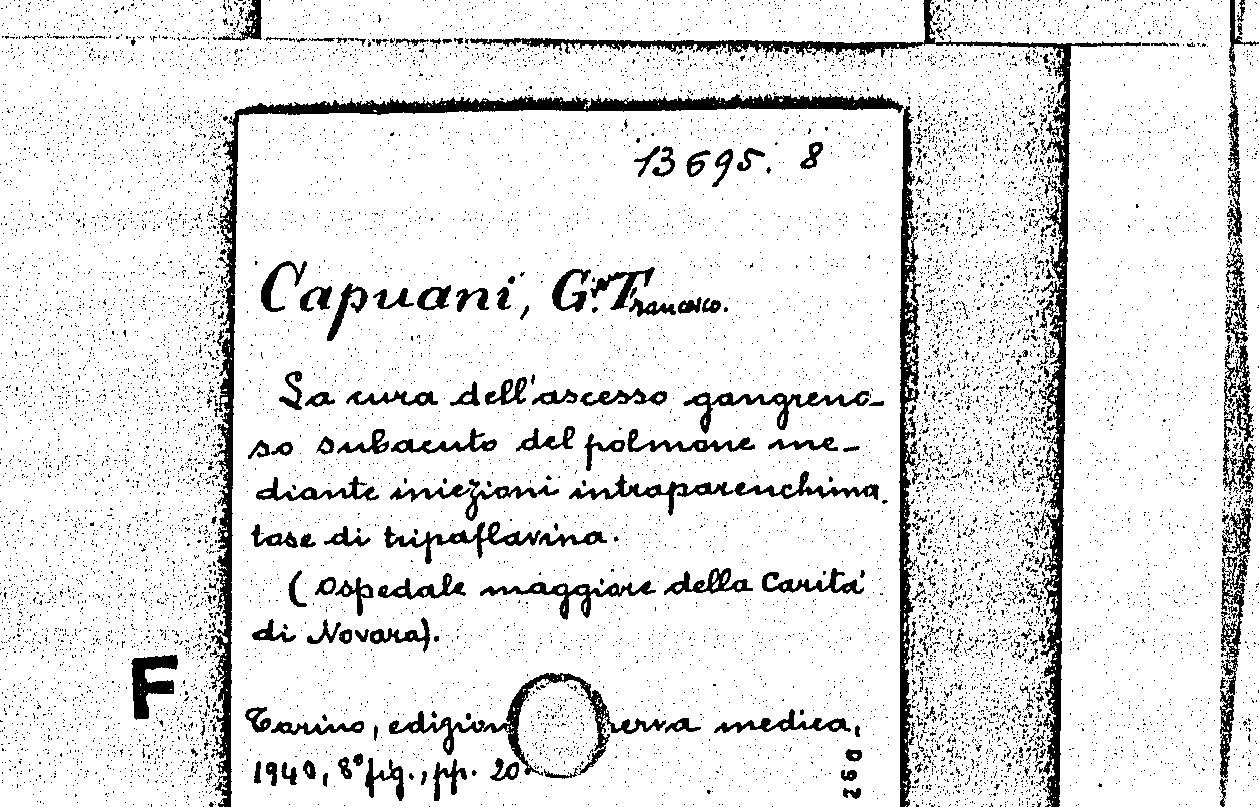 13695. 8
Capuani, G. Francesco.
La cura dell'ascesso gangreno-
so subacuto del polmone me-
diante iniezioni intraparenchima.
tose di tripaflavina.
(Ospedale maggiore della Carità
di Novara).
F
Torino, edizion erva medica,
1940, 8° fig., pp. 20.
092